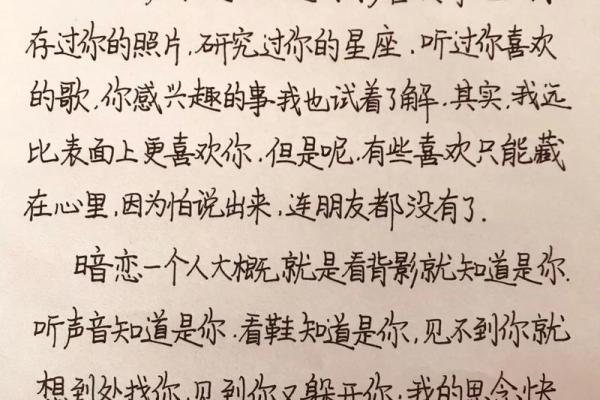 存过你的照片,研究过你的星座.听过你喜欢
的歌,你感兴趣的事我也试着了解.其实,我远
比表面上更喜欢你.但是呢,有些喜欢只能藏
在心里,因为怕说出来,连朋友都没有了.
暗恋一个人大概就是看背影就知道是你.
听声音知道是你.看鞋知道是你,见不到你就
想到处找你,见到你又躲开你;我的思念快